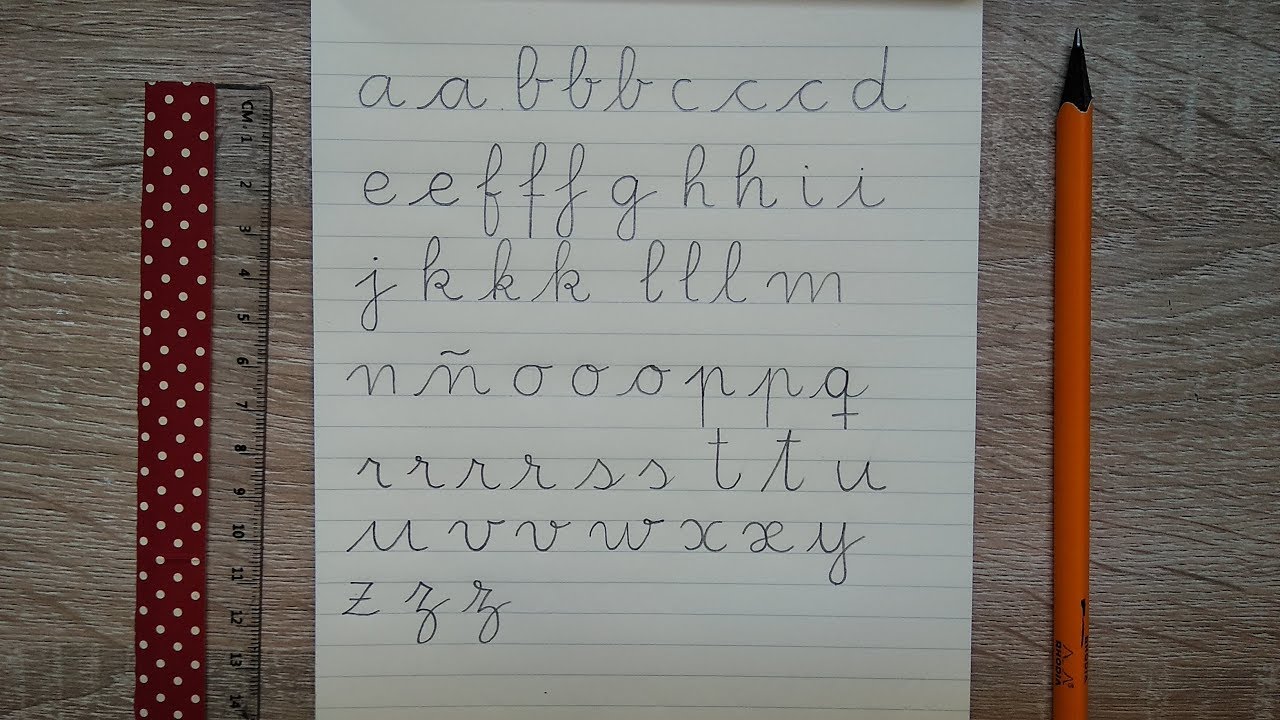 a a b b b c c c d
e e f f f g h h i i
j k k k l l l m
n ñ o o o p p q
r r r r s s t t u
u v v w x x y
z z z
CM 1
2
3
4
5
6
7
8
9
10
11
12
13
14
RHODIA